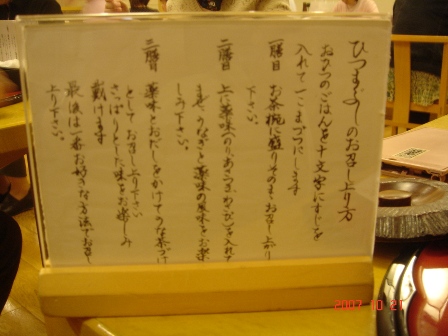 ひつまぶしのお召し上り方
おひつのごはんを十文字にすじを
入れて一こまづつにします
一膳目 お茶碗に盛りそのままお召し上り
下さい。
二膳目 上に薬味(のり、あさつき、わさび)を入れて
まぜ、うなぎと薬味の風味をお楽
しみ下さい。
三膳目 薬味とおだしをかけてうな茶づけ
としてお召し上り下さい
さっぱりとした味をお楽しみ
戴けます
最後は一番お好きな方法でお召し
上り下さい。
2007 10 21